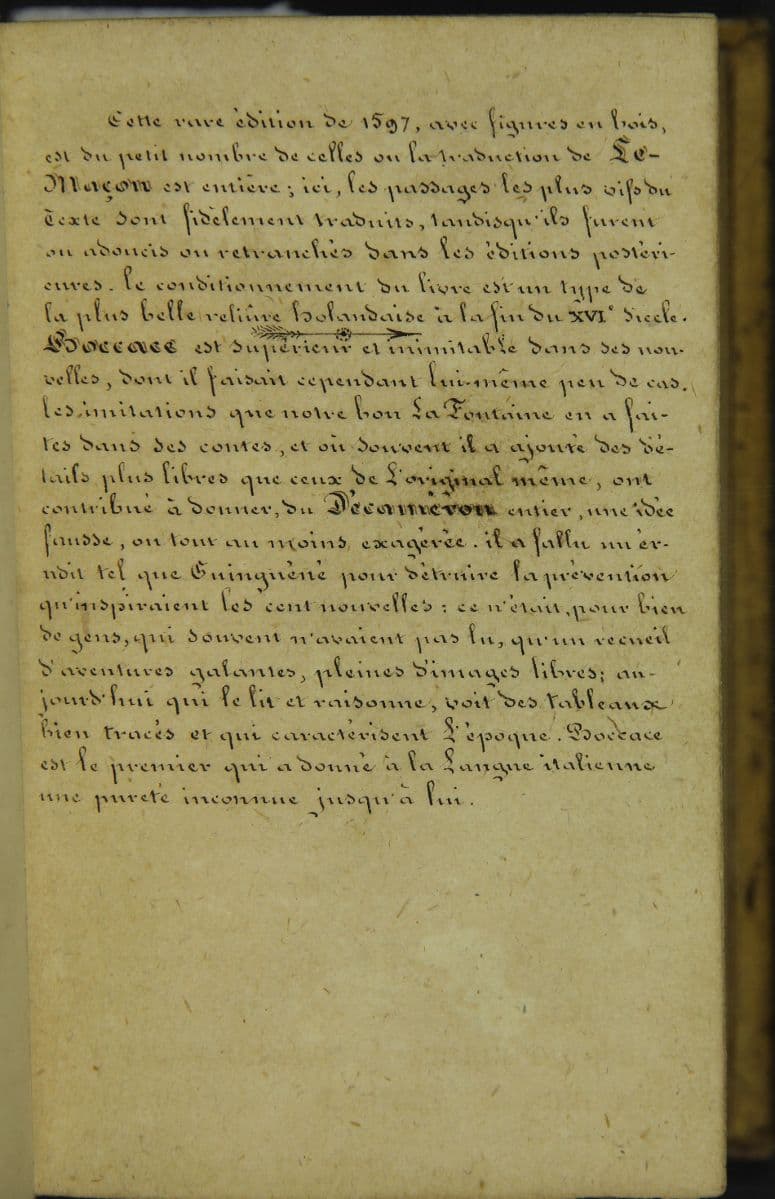 Cette rare èdition de 1597, avec figures en bois,
est du petit nombre de celles ou la traduction de Le-
Maçon est entière; ici, les passages les plus vifs du
Texte sont fidèlement traduits, tandisqu'ils furent
ou adoucis ou retranchès dans les èditions postèri-
eures. le conditionnement du livre est un type de
la plus belle reliûre holandaise à la fin du XVIe Siecle.
Boccace est supèrieur et inimitable dans ses nou-
velles, dont il faisait cependant lui-même peu de cas.
les imitations que notre bon La Fontaine en a fai-
tes dans ses contes, et où souvent il a ajoutè des dè-
tails plus libres que ceux de L'original même, ont
contribuè à donner, du Dècamèron entier, une idèe
fausse, ou tout au moins exagèrèe. il a fallu un èr-
udit tel que Guinguènè pour dètruire la prèvention
qu'inspiraient les cent nouvelles: ce n'ètait, pour bien
de gens, qui souvent n'avaient pas lu, qu'un recueil
d'aventures galantes, pleines d'images libres; au-
jourd'hui qui le lit et raisonne, voit des tableaux
bien tracès et qui caractèrisent L'èpoque. Boccace
est le premier qui a donnè à la Langue italienne
une puretè inconnue jusqu'à lui.